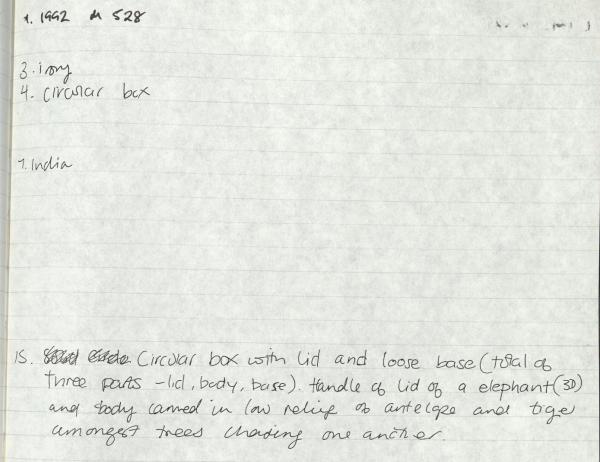 1. 1992 M 528
3. ivory
4. circular box
7. India
15. Circular box with lid and loose base (total of
three parts - lid, body, base). Handle of lid of a elephant (3D)
and body carved in low relief of antelope and tiger
amongst trees chasing one another.